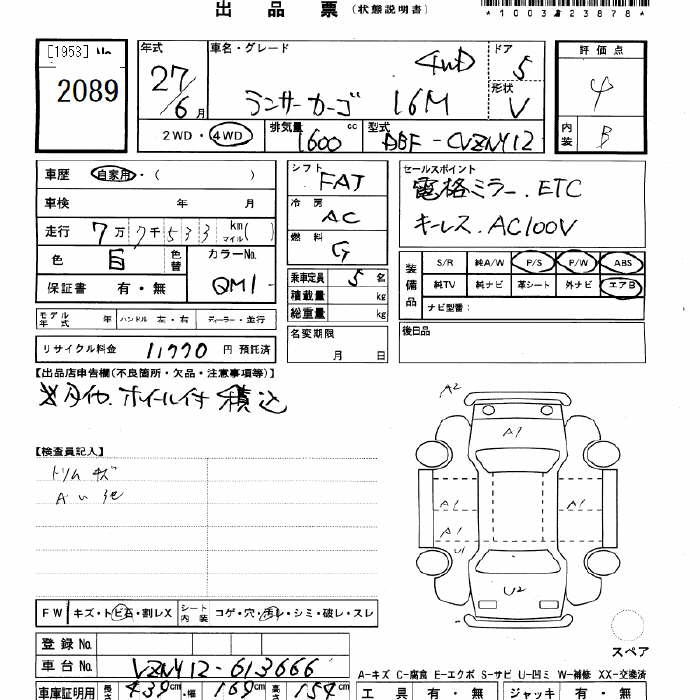 出品票 (状態説明書)
*1003823878*
[1953]
2089
年式 27/6月
車名・グレード ランサーカーゴ 16M 4WD
ドア 5
形状 V
評価点 4
内装 B
2WD・4WD 排気量 1600 cc 型式 DBF-CVZNY12
車歴 自家用・( )
車検 年 月
走行 7万 7千 5 3 3 km マイル( )
色 白 色替 カラーNo. QM1
保証書 有・無
シフト FAT
冷房 AC
燃料 G
乗車定員 5 名
積載量 kg
総重量 kg
セールスポイント
電格ミラー. ETC
キーレス. AC100V
装備品 S/R 純A/W P/S P/W ABS
純TV 純ナビ 革シート 外ナビ エアB
ナビ型番:
モデル年式 年 ハンドル 左・右 ディーラー・並行
名変期限 月 日
後日品
リサイクル料金 11770 円 預託済
【出品店申告欄(不良箇所・欠品・注意事項等)】
タイヤ. ホイール付 積込
【検査員記入】
トリム キズ
A2
A1
A1
A1
A1
U1
U2
FW キズ・トビ石・割レX シート内装 コゲ・穴・汚レ・シミ・破レ・スレ
スペア
登録No.
車台No. VZNY12-613666
A-キズ C-腐食 E-エクボ S-サビ U-凹ミ W-補修 XX-交換済
車庫証明用 長さ 439cm・幅 169cm 高さ 154cm
工具 有・無 ジャッキ 有・無